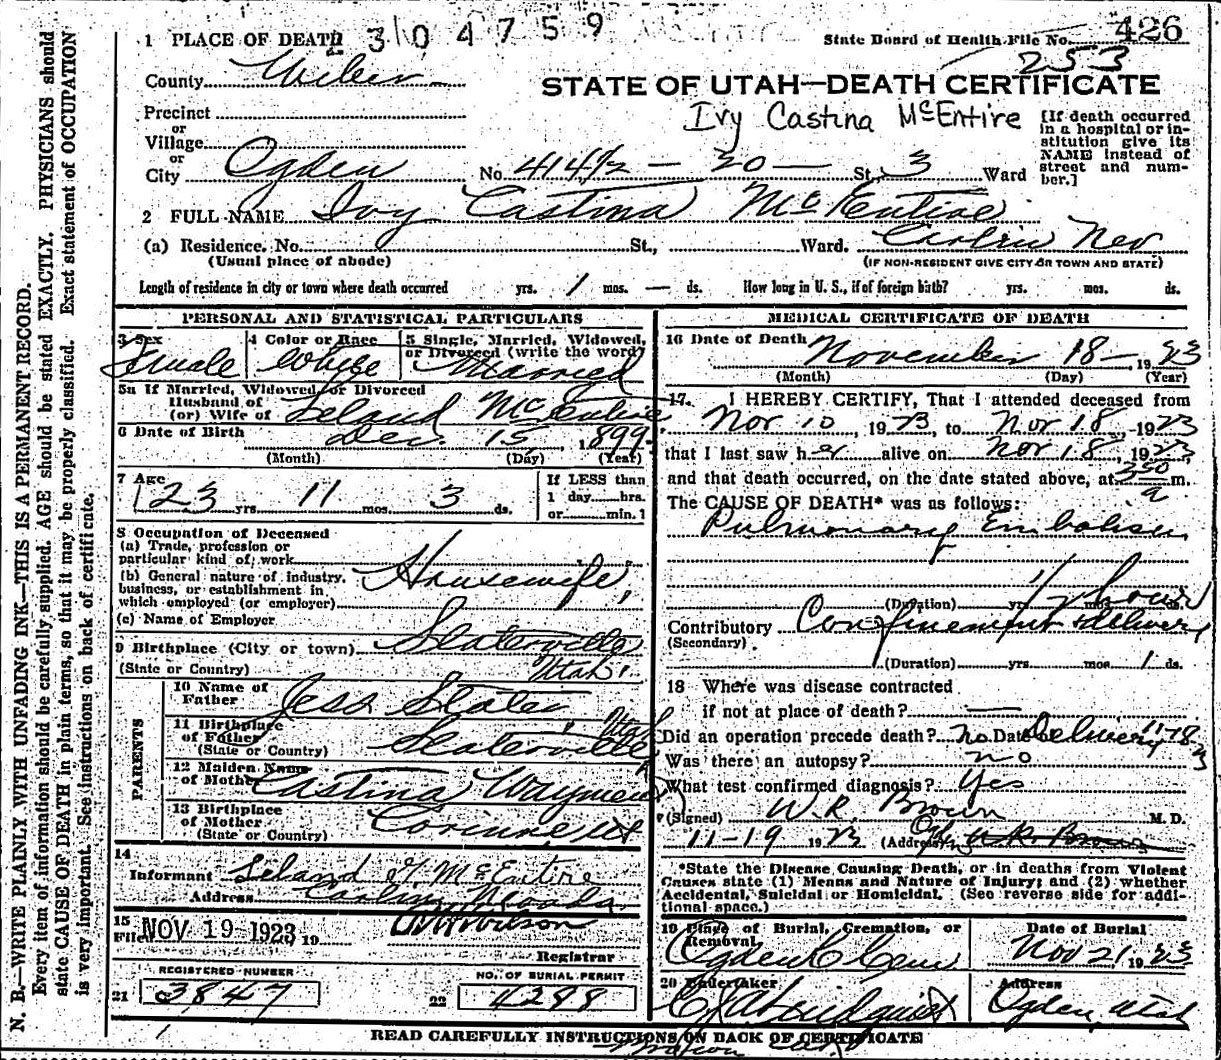 1 PLACE OF DEATH 304759
State Board of Health File No. 426
253
County Weber
STATE OF UTAH—DEATH CERTIFICATE
Precinct
Ivy Castina McEntire
or
Village
or
City Ogden No. 414½ — 20 — St., 3 Ward
[If death occurred
in a hospital or in-
stitution give its
NAME instead of
street and num-
ber.]
2 FULL NAME Ivy Castina McEntire
(a) Residence. No. St., Ward. Carlin Nev
(Usual place of abode) (IF NON-RESIDENT GIVE CITY OR TOWN AND STATE)
Length of residence in city or town where death occurred yrs. 1 mos. — ds. How long in U. S., if of foreign birth? yrs. mos. ds.
PERSONAL AND STATISTICAL PARTICULARS
3 Sex Female
4 Color or Race White
5 Single, Married, Widowed,
or Divorced (write the word)
Married
5a If Married, Widowed or Divorced
Husband of
(or) Wife of Leland McEntire
6 Date of Birth Dec. 15, 1899
(Month) (Day) (Year)
7 Age 23 yrs 11 mos. 3 ds.
If LESS than
1 day hrs.
or min. 1
8 Occupation of Deceased
(a) Trade, profession or
particular kind of work
(b) General nature of industry,
business, or establishment in
which employed (or employer)
Housewife,
(c) Name of Employer
9 Birthplace (City or town) Slaterville
(State or Country) Utah
PARENTS
10 Name of
Father Jess Slater
11 Birthplace
of Father
(State or Country) Slaterville Utah
12 Maiden Name
of Mother Castina Wayment
13 Birthplace
of Mother
(State or Country) Corinne, Ut
14
Informant Leland McEntire
Address Carlin, Nevada
15
Filed NOV 19 1923 19
Registrar
REGISTERED NUMBER
21 3847
NO. OF BURIAL PERMIT
22 4298
MEDICAL CERTIFICATE OF DEATH
16 Date of Death November 18 — 1923
(Month) (Day) (Year)
17. I HEREBY CERTIFY, That I attended deceased from
Nov 10, 1923, to Nov 18 - 1923
that I last saw her alive on Nov 18, 1923,
and that death occurred, on the date stated above, at 3 50 a m.
The CAUSE OF DEATH* was as follows:
Pulmonary Embolism
(Duration) yrs. mos. ds. 1/2 hour
Contributory Confinement & delivery
(Secondary)
(Duration) yrs. mos. 1 ds.
18 Where was disease contracted
if not at place of death? —
Did an operation precede death? no Date Delivery 11-18-23
Was there an autopsy? no
What test confirmed diagnosis? Yes
(Signed) W. R. Brown M. D.
11-19 1923 (Address)
*State the Disease Causing Death, or in deaths from Violent
Causes state (1) Means and Nature of Injury; and (2) whether
Accidental, Suicidal or Homicidal. (See reverse side for addi-
tional space.)
19 Place of Burial, Cremation, or
Removal. Ogden
Date of Burial
Nov 21 1923
20 Undertaker
Address
Ogden, Utah
READ CAREFULLY INSTRUCTIONS ON BACK OF CERTIFICATE
N. B.—WRITE PLAINLY WITH UNFADING INK—THIS IS A PERMANENT RECORD.
Every item of information should be carefully supplied. AGE should be stated EXACTLY. PHYSICIANS should
state CAUSE OF DEATH in plain terms, so that it may be properly classified. Exact statement of OCCUPATION
is very important. See instructions on back of certificate.